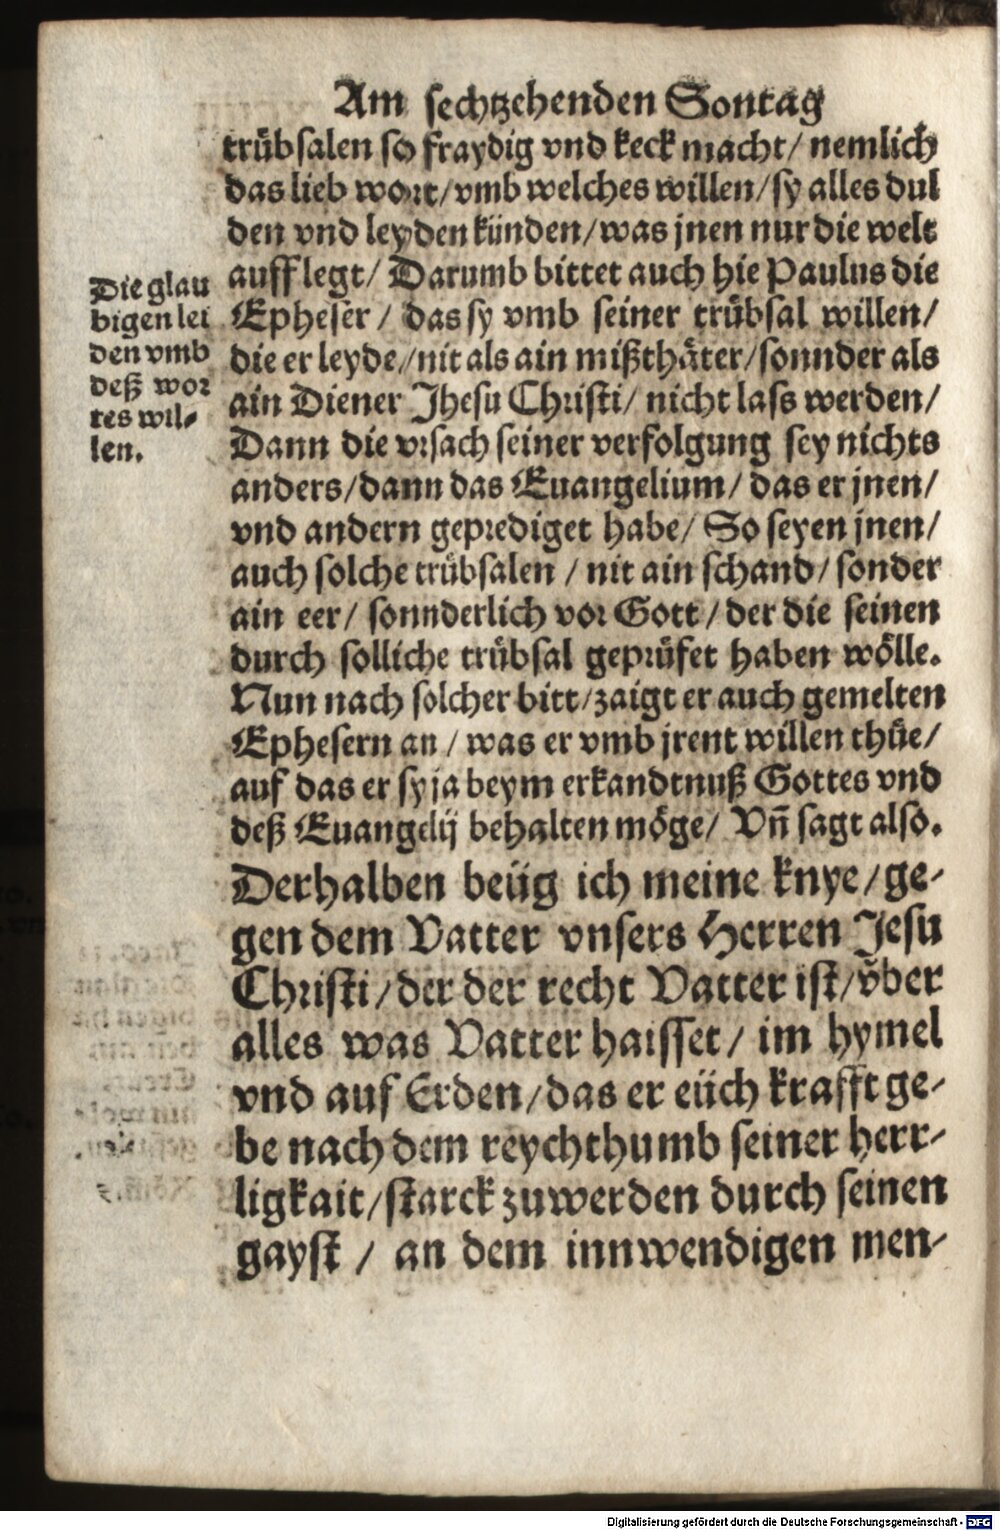 Am sechtzehenden Sontag
trübsalen so fraydig vnd keck macht/ nemlich
das lieb wort/ vmb welches willen/ sy alles dul
den vnd leyden künden/ was jnen nur die welt
aufflegt/ Darumb bittet auch hie Paulus die
Epheser/ das sy vmb seiner trübsal willen/
die er leyde/ nit als ain mißthäter/ sonnder als
ain Diener Jhesu Christi/ nicht lass werden/
Dann die vrsach seiner verfolgung sey nichts
anders/ dann das Euangelium/ das er jnen/
vnd andern geprediget habe/ So seyen jnen/
auch solche trübsalen / nit ain schand/ sonder
ain eer/ sonnderlich vor Gott/ der die seinen
durch solliche trübsal geprüfet haben wölle.
Nun nach solcher bitt/ zaigt er auch gemelten
Ephesern an / was er vmb jrent willen thüe/
auf das er sy ja beym erkandtnuß Gottes vnd
deß Euangelij behalten möge/ Vñ sagt also.
Derhalben beüg ich meine knye/ ge-
gen dem Vatter vnsers Herren Jesu
Christi/ der der recht Vatter ist/ vber
alles was Vatter haisset/ im hymel
vnd auf Erden/ das er eüch krafft ge-
be nach dem reychthumb seiner herr-
ligkait/ starck zuwerden durch seinen
gayst / an dem innwendigen men-
Die glau
bigen lei
den vmb
deß wor
tes wil-
len.
Digitalisierung gefördert durch die Deutsche Forschungsgemeinschaft - DFG